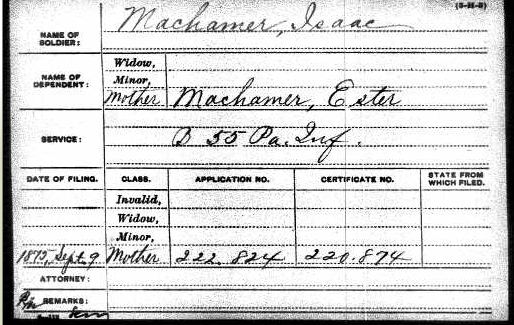 (3-14-5)
NAME OF SOLDIER: Machamer, Isaac
NAME OF DEPENDENT: Widow,
Minor,
Mother Machamer, Ester
SERVICE: B 55 Pa. Inf.
DATE OF FILING. CLASS. APPLICATION NO. CERTIFICATE NO. STATE FROM WHICH FILED.
Invalid,
Widow,
Minor,
1875, Sept. 9 Mother 222.824 220.874
ATTORNEY:
REMARKS: